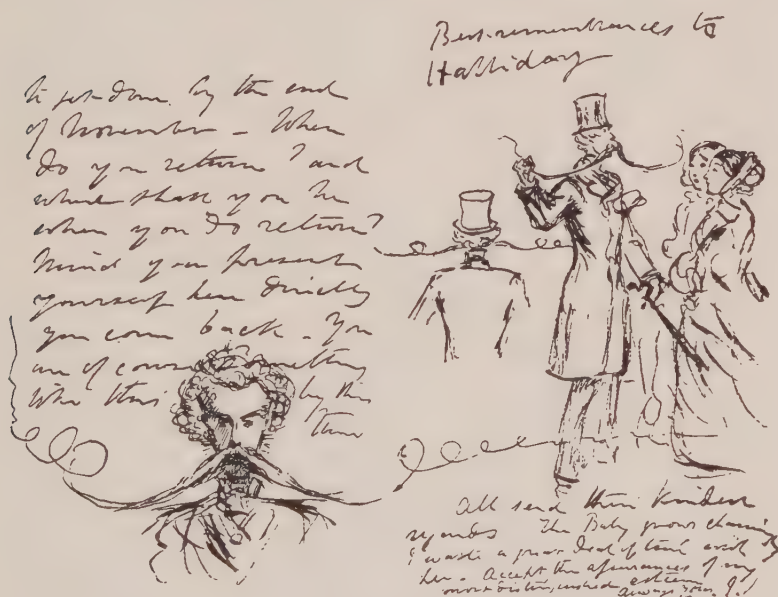 to get done by the end
of November – When
do you return? and
where shall you be
when you do return?
Mind you present
yourself here directly
you come back – You
are of course something
like this by this
time
Best remembrances to
Halliday
All send their kindest
regards The Baby grows charming
I waste a great deal of time with
her. Accept the assurances of my
most distinguished esteem
always yours